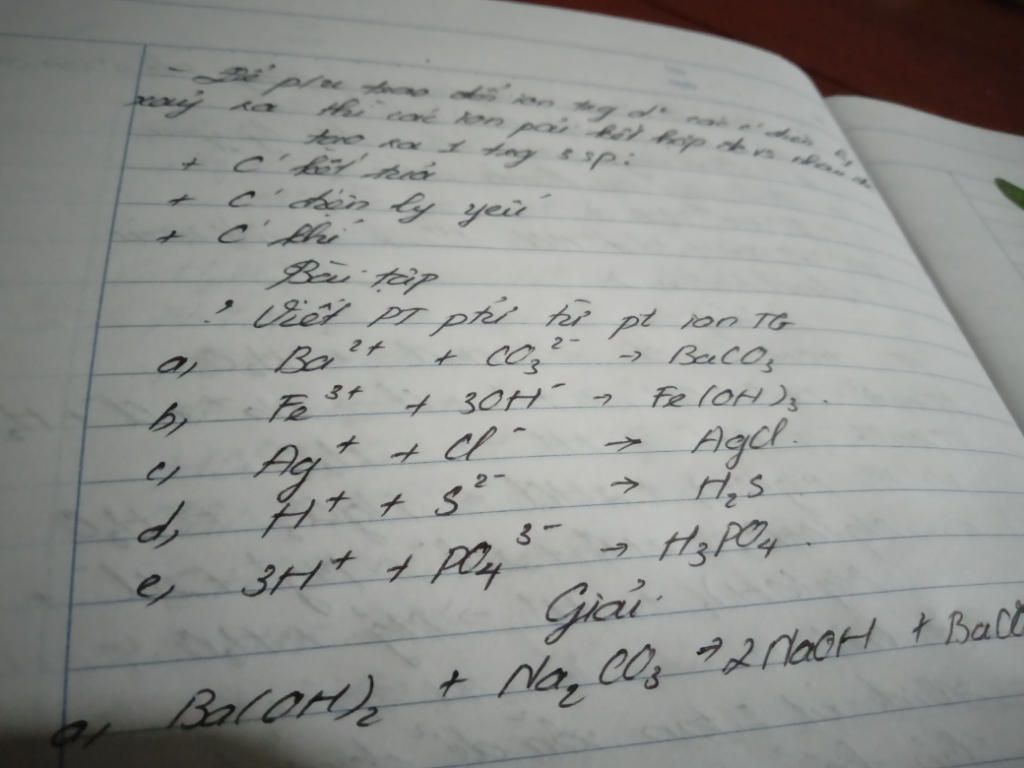 - Để p/ư trao đổi ion trg d² các c' điện ly
xảy ra thì các ion pải kết hợp đc vs nhau
tạo ra 1 trg 3 sp:
+ C' kết tủa
+ C' điện ly yếu
+ C' khí
Bài tập
? Viết PT ptử từ pt ion TG
a, Ba²⁺ + CO₃²⁻ → BaCO₃
b, Fe³⁺ + 3OH⁻ → Fe(OH)₃.
c, Ag⁺ + Cl⁻ → AgCl.
d, H⁺ + S²⁻ → H₂S
e, 3H⁺ + PO₄³⁻ → H₃PO₄.
Giải.
a, Ba(OH)₂ + Na₂CO₃ → 2NaOH + BaCO